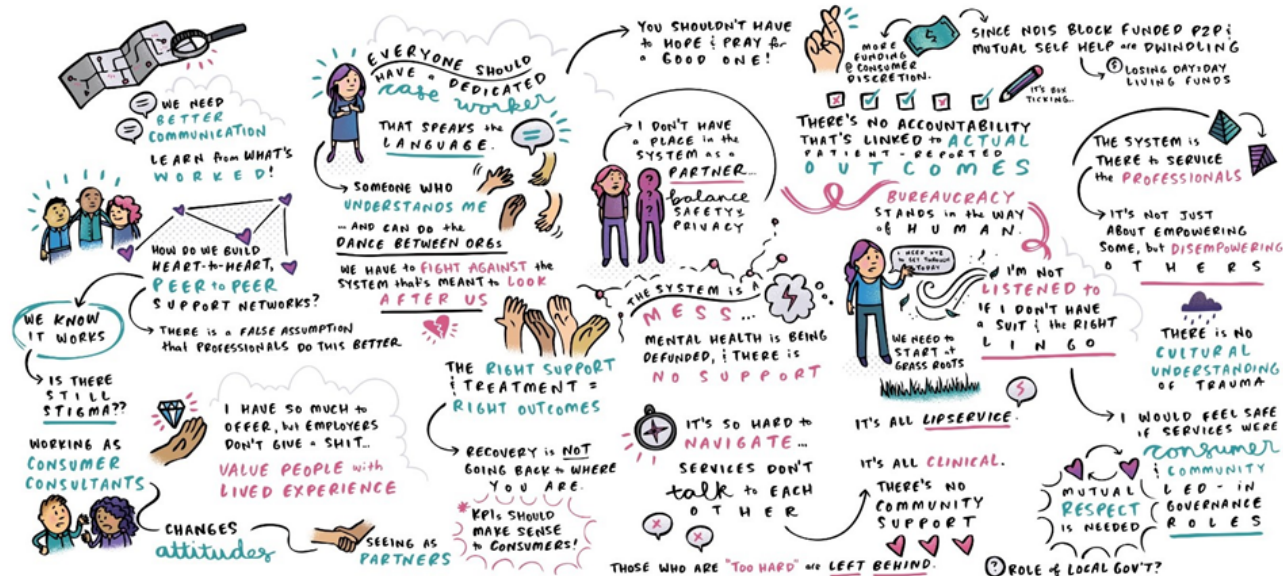 WE NEED
BETTER
COMMUNICATION
LEARN from WHAT'S
WORKED!
HOW DO WE BUILD
HEART-to-HEART,
PEER to PEER
SUPPORT NETWORKS?
THERE IS a FALSE ASSUMPTION
that PROFESSIONALS DO THIS BETTER
WE KNOW
IT WORKS
IS THERE
STILL
STIGMA??
WORKING AS
CONSUMER
CONSULTANTS
CHANGES
attitudes
SEEING AS
PARTNERS
I HAVE SO MUCH to
OFFER, but EMPLOYERS
DON'T GIVE a SHIT...
VALUE PEOPLE with
LIVED EXPERIENCE
EVERYONE SHOULD
HAVE a DEDICATED
case worker
THAT SPEAKS the
LANGUAGE.
SOMEONE WHO
UNDERSTANDS ME
... AND CAN DO the
DANCE BETWEEN ORGs
WE HAVE to FIGHT AGAINST the
SYSTEM that's MEANT to LOOK
AFTER US
YOU SHOULDN'T HAVE
to HOPE & PRAY for
a GOOD ONE!
THE RIGHT SUPPORT
& TREATMENT =
RIGHT OUTCOMES
RECOVERY is NOT
GOING BACK to WHERE
YOU ARE.
*KPIs SHOULD
MAKE SENSE
to CONSUMERS!
I DON'T HAVE
a PLACE in the
SYSTEM as a
PARTNER...
balance
SAFETY &
PRIVACY
THE SYSTEM is A
MESS...
MENTAL HEALTH is BEING
DEFUNDED, & THERE is
NO SUPPORT
IT'S SO HARD to
NAVIGATE...
SERVICES DON'T
talk to EACH
OTHER
THOSE WHO ARE "TOO HARD" are LEFT BEHIND.
MORE
FUNDING
@ CONSUMER
DISCRETION.
SINCE NDIS BLOCK FUNDED P2P &
MUTUAL SELF HELP are DWINDLING
LOSING DAY:DAY
LIVING FUNDS
IT'S BOX
TICKING...
THERE'S NO ACCOUNTABILITY
THAT'S LINKED to ACTUAL
PATIENT-REPORTED
OUTCOMES
BUREAUCRACY
STANDS in the WAY
of HUMAN.
I NEED XYZ
to GET THROUGH
TODAY
I'M NOT
LISTENED to
IF I DON'T HAVE
a SUIT & the RIGHT
LINGO
WE NEED to
START at
GRASS ROOTS
IT'S ALL LIPSERVICE.
IT'S ALL CLINICAL.
THERE'S NO
COMMUNITY
SUPPORT
THE SYSTEM is
THERE to SERVICE
the PROFESSIONALS
IT'S NOT JUST
ABOUT EMPOWERING
SOME, but DISEMPOWERING
OTHERS
THERE is NO
CULTURAL
UNDERSTANDING
OF TRAUMA
I WOULD FEEL SAFE
IF SERVICES WERE
consumer
& COMMUNITY
LED - IN
GOVERNANCE
ROLES
MUTUAL
RESPECT
is NEEDED
? ROLE of LOCAL GOV'T?